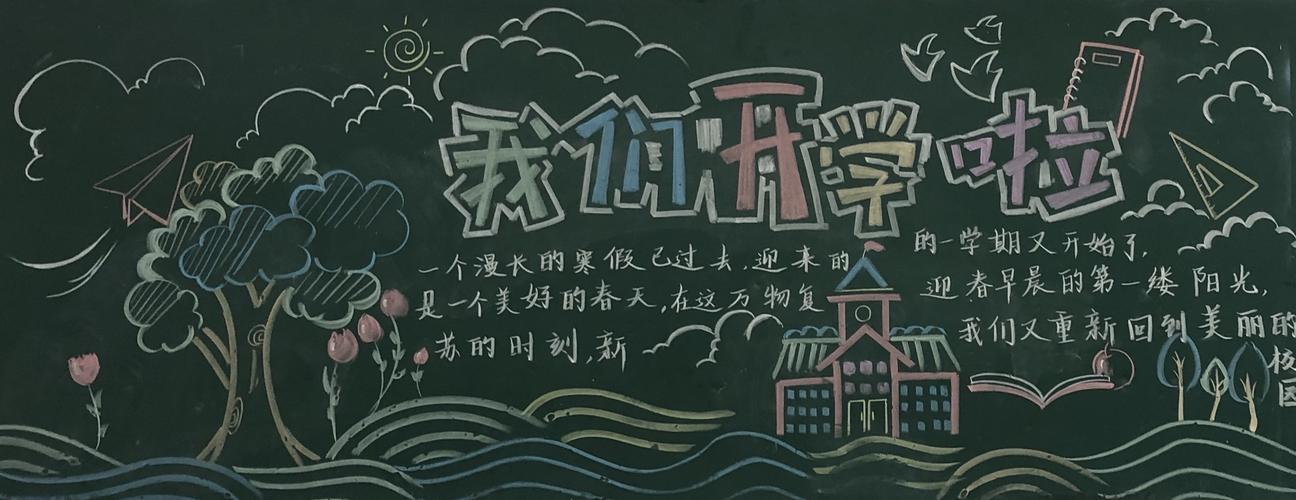 我们开学啦
一个漫长的寒假已过去,迎来的
是一个美好的春天,在这万物复
苏的时刻,新
的一学期又开始了,
迎春早晨的第一缕阳光,
我们又重新回到美丽的
校园